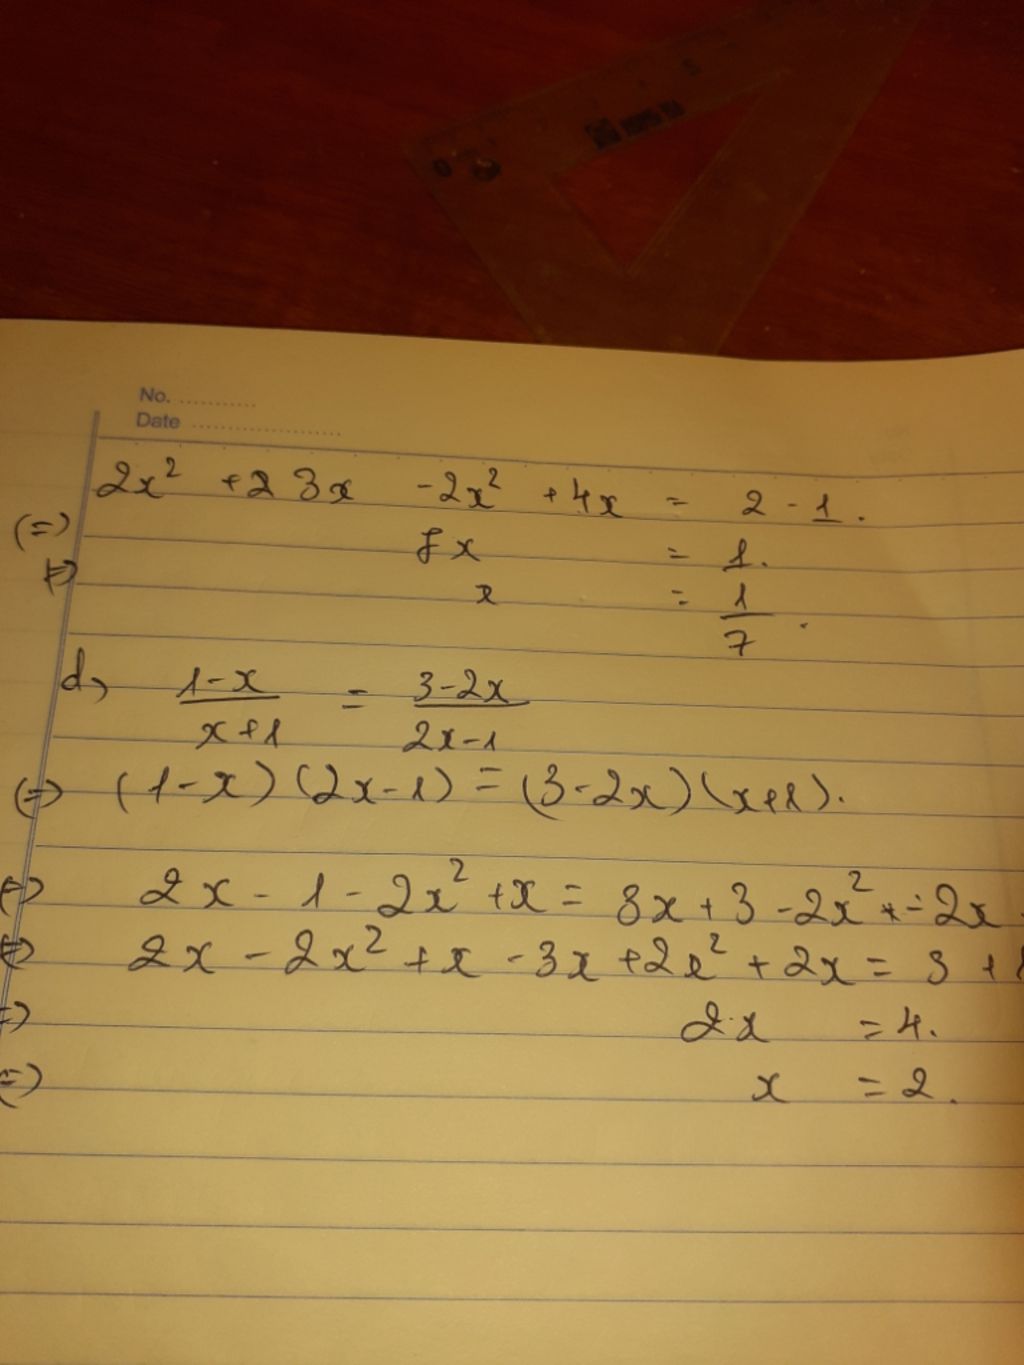 No. ...........
Date ....................
2x² + 2 3x - 2x² + 4x = 2 - 1.
(=) 7x = 1.
(=) x = 1/7.
d, (1-x)/(x+1) = (3-2x)/(2x-1)
(=) (1-x)(2x-1) = (3-2x)(x+1).
(=) 2x - 1 - 2x² + x = 3x + 3 - 2x² - 2x
(=) 2x - 2x² + x - 3x + 2x² + 2x = 3 + 1
(=) 2x = 4.
(=) x = 2.